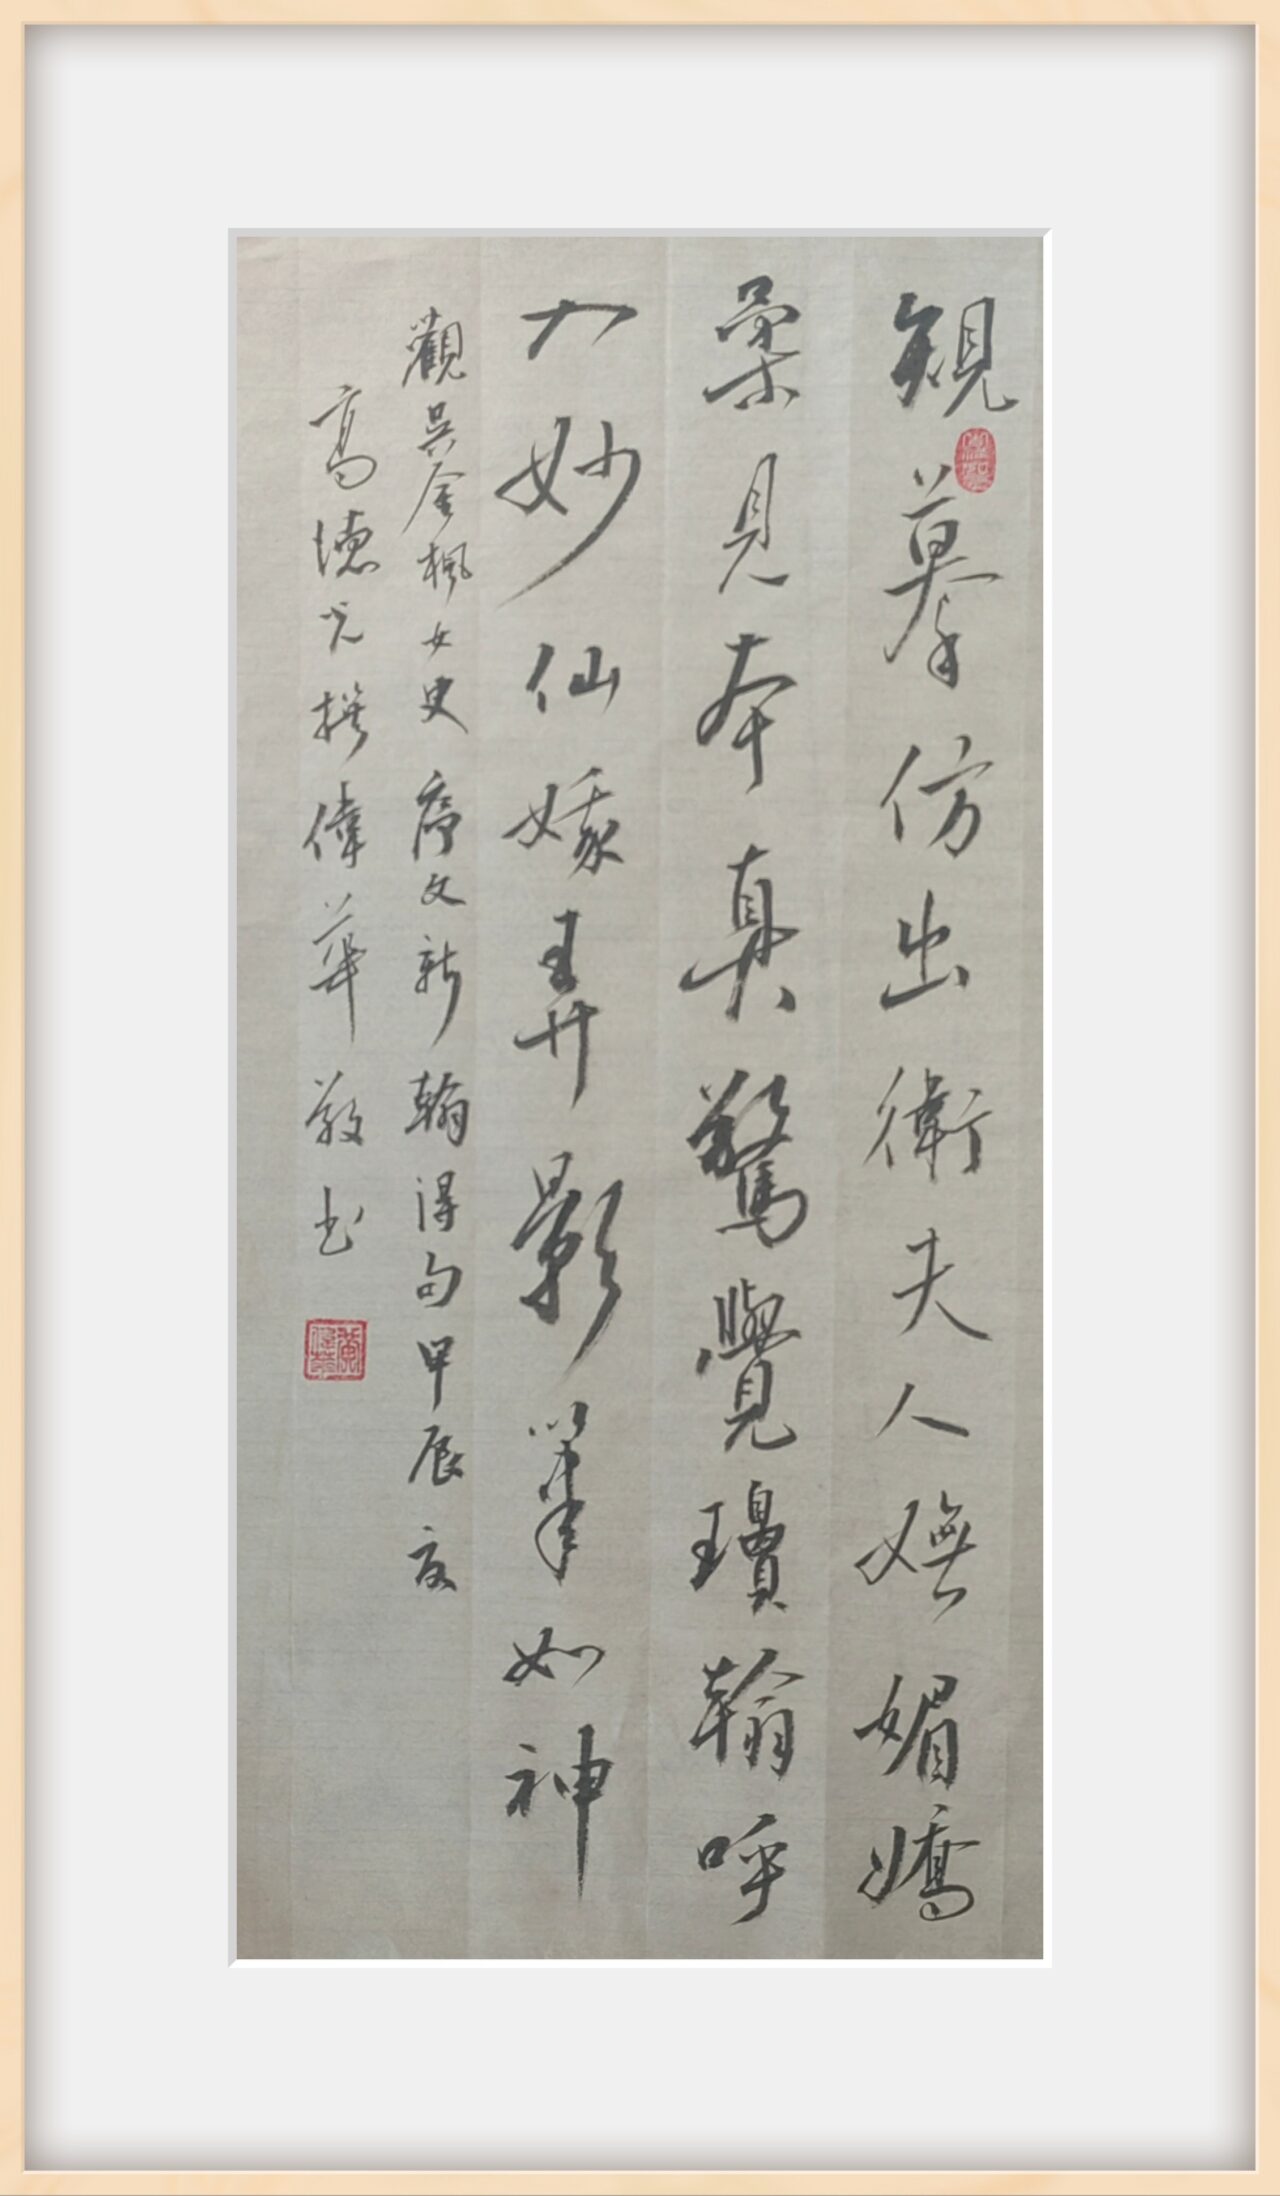 觀摹仿出衛夫人嫵媚嬌
柔見本真驚覺瓊翰呼
入妙仙娥弄影筆如神
觀吳金楓女史序文新翰得句甲辰夏
高德兄撰偉華敬书